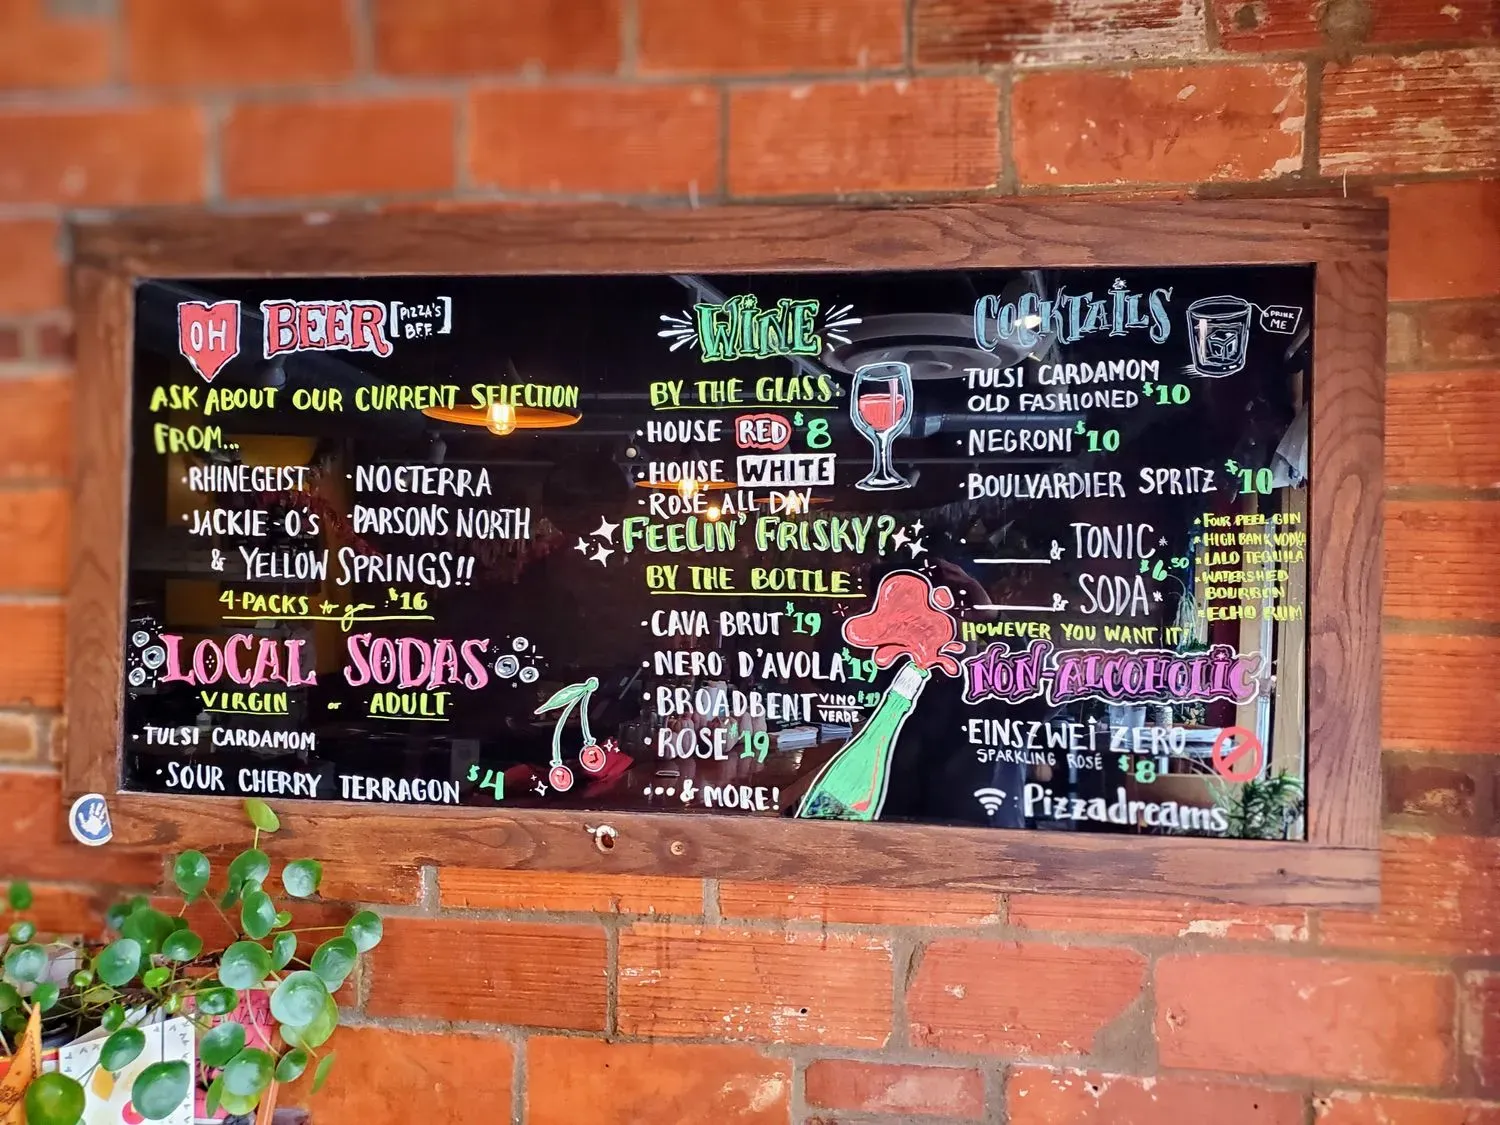 OH BEER [PIZZA'S B.F.F.]
ASK ABOUT OUR CURRENT SELECTION
FROM...
·RHINEGEIST ·NOCTERRA
·JACKIE-O's ·PARSONS NORTH
& YELLOW SPRINGS!!
4-PACKS to go :$16
LOCAL SODAS
VIRGIN - or - ADULT-
·TULSI CARDAMOM
·SOUR CHERRY TERRAGON $4
WINE
BY THE GLASS:
·HOUSE RED $8
·HOUSE WHITE
·ROSÉ ALL DAY
FEELIN' FRISKY?
BY THE BOTTLE:
·CAVA BRUT $19
·NERO D'AVOLA $19
·BROADBENT VINO VERDE $19
·ROSÉ $19
...& MORE!
COCKTAILS
DRINK
ME
·TULSI CARDAMOM
OLD FASHIONED $10
·NEGRONI $10
·BOULVARDIER SPRITZ $10
·____& TONIC*
$6.50
·____& SODA*
*FOUR PEEL GIN
*HIGH BANK VODKA
*LALO TEQUILA
*WATERSHED
BOURBON
*ECHO RUM
HOWEVER YOU WANT IT!
NON-ALCOHOLIC
·EINSZWEI ZERO
SPARKLING ROSÉ $8
: Pizzadreams